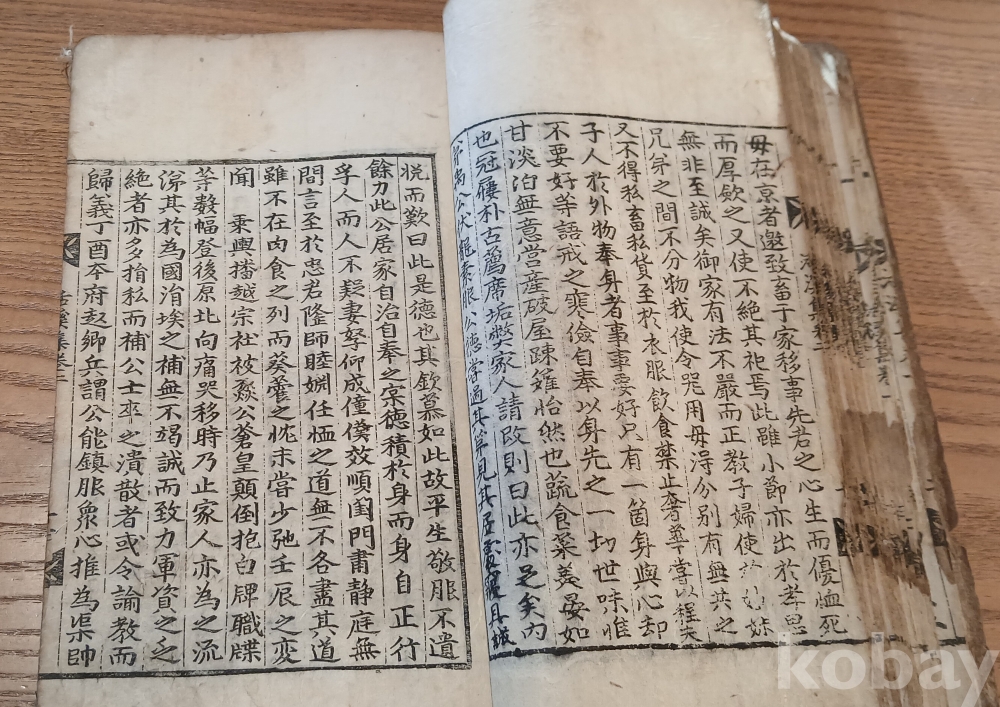 母在京者邀致畜于家移事先君之心生而優恤死
而厚歛之又使不絕其祀焉此雖小節亦出於孝思
無非至誠矣御家有法不嚴而正教子婦使
兄弟之間不分物我使令咒用毋淂分別有無共之
又不得私畜私貨至於衣服飮食禁止奢華常以程夫
子人於外物奉身者事事要好只有一箇身與心却
不要好等語戒之寒儉自奉以身先之一切世味惟
甘淡泊無意営産破屋踈籬怡然也蔬食菜羹晏如
也冠屨朴古薦席垢弊家人請改則曰此亦足矣內
弟萬公伏龍素服公德甞過其第見其
恱而歎曰此是德也其欽慕如此故平生敬服不遺
餘力此公居家自治自奉之宲德積於身而身自正行
孚人而人不疑妻孥仰成僮僕效順閨門肅静庭無
間言至於忠君隆師睦婣任恤之道無不各盡其道
雖不在肉食之列而葵藿之忱未嘗少弛壬辰之変
聞 乗輿播越宗社被燹公蒼皇顛倒抱白牌職牒
等数幅登後原北向痛哭移時乃止家人亦為之流
涕其於為國涓埃之補無不竭誠而致力軍資之乏
絶者亦多捐私而補公士卒之潰散者或令論教而
歸義丁酉本府起鄉兵謂公能鎮服衆心推為渠帥
kobay